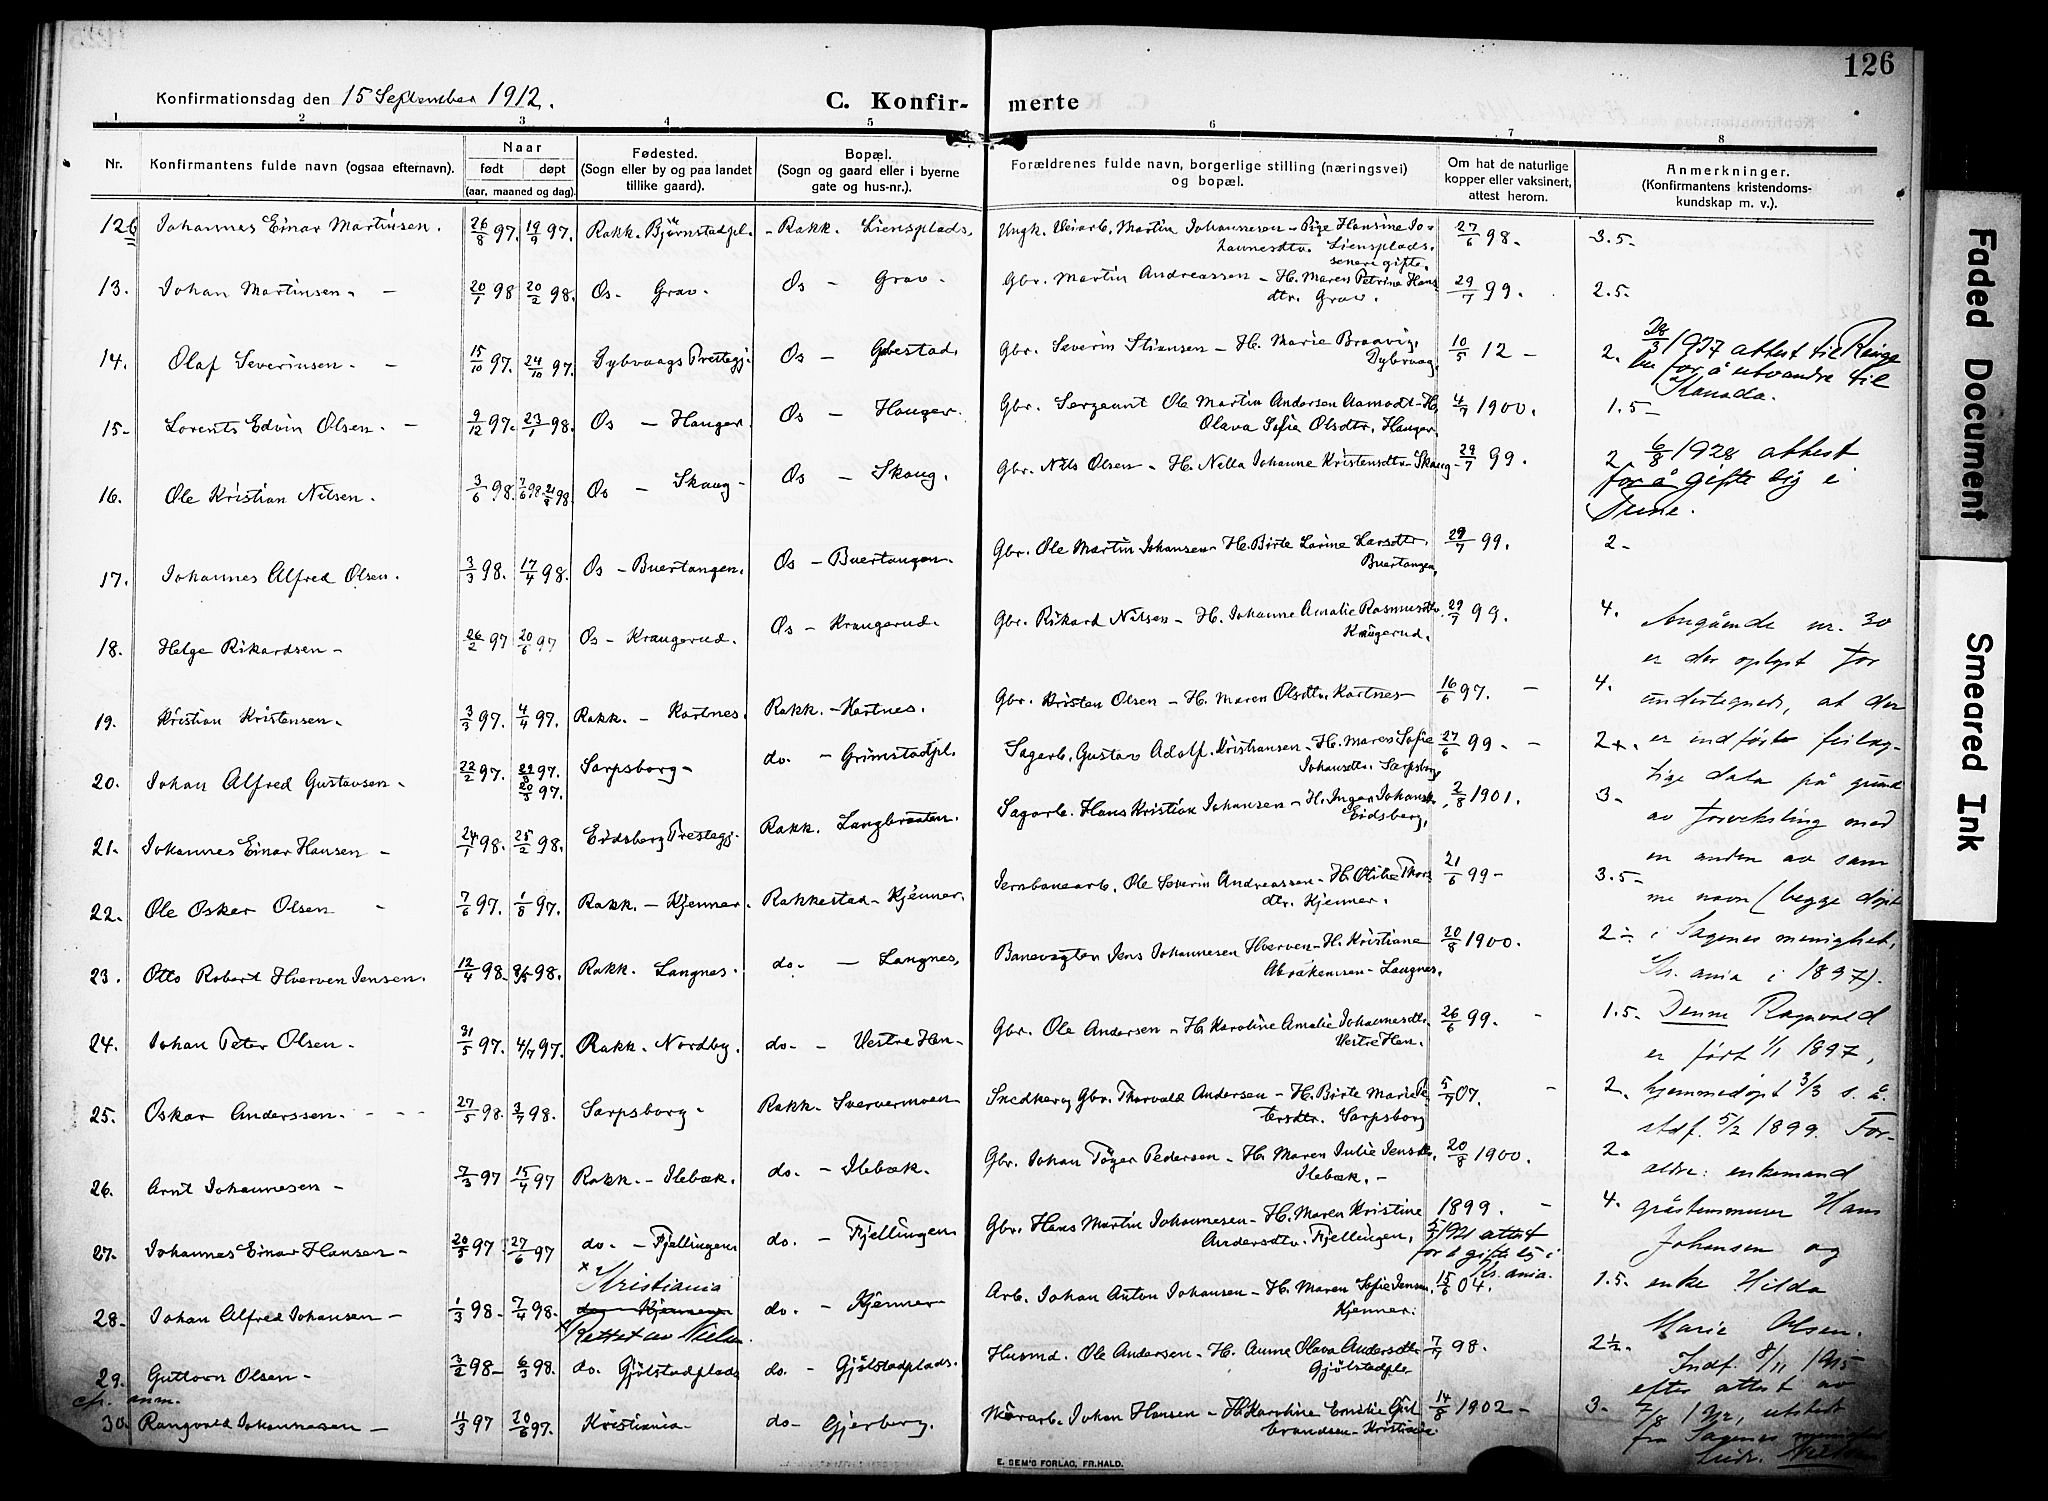 126
Konfirmationsdag den 15 September 1912.
C. Konfir- merte
1 2 3 4 5 6 7 8
Nr.
Konfirmantens fulde navn (ogsaa efternavn).
Naar
født døpt
(aar, maaned og dag).
Fødested.
(Sogn eller by og paa landet
tillike gaard).
Bopæl.
(Sogn og gaard eller i byerne
gate og hus-nr.).
Forældrenes fulde navn, borgerlige stilling (næringsvei)
og bopæl.
Om hat de naturlige
kopper eller vaksinert,
attest herom.
Anmerkninger.
(Konfirmantens kristendoms-
kundskap m. v.).
12 Johannes Einar Martinsen. 26/8 97. 19/9 97. Rakk. Bjørnstadpl. - Rakk. Liensplads. Ungk. Veiarb. Martin Johannesen - Pige Hansine Jo-
hannesdtr. Liensplads.
senere gifte.
27/6 98. 3.5-
13. Johan Martinsen. - 20/1 98 20/2 98. Os - Grav. Os - Grav. Gbr. Martin Andreassen - H. Maren Petrine Hans
dtr. Grav.
29/7 99. 2.5.
14. Olaf Severinsen. - 15/10 97. 24/10 97. Dybvaags Prestegj. Os - Gbestad. Gbr. Severin Stiansen - H. Marie Braavig,
Dybvaag.
10/5 12 - 2. 28/3 1927 attest til Ringe
bu for å utvandre til
Kanada.
15- Lorents Edvin Olsen. - 9/12 97. 23/1 98. Os - Hauger. Os - Hauger. Gbr. Sergeant Ole Martin Andersen Aamodt - H.
Olava Sofie Olsdtr. Hauger.
4/7 1900. 1.5-
16. Ole Kristian Nilsen. 3/6 98. Os - Skaug - Os - Skaug. Gbr. Nils Olsen - H. Nella Johanne Kristensdtr. Skaug - 29/7 99. 2 6/8 1928 attest
for å gifte sig i
Tune.
17. Johannes Alfred Olsen. 3/3 98. 17/4 98. Os - Buertangen. Os - Buertangen. Gbr. Ole Martin Johansen - H. Birte Larine Larsdtr.
Buertangen.
29/7 99. 2-
18. Helge Rikardsen - 26/2 97 20/6 97 Os - Kraugerud. Os - Kraugerud. Gbr. Rikard Nilsen - H. Johanne Amalie Rasmusdtr.
Kraugerud.
29/7 99. 4.
19. Kristian Kristensen. 3/3 97. 4/4 97. Rakk. - Kartnes. Rakk. - Kartnes. Gbr. Kristen Olsen - H. Maren Olsdtr. Kartnes - 16/6 97. - 4.
20. Johan Alfred Gustavsen - 22/2 97. 22/8 97. 20/5 97. Sarpsborg - do. - Grimstadpl. Sagarb. Gustav Adolf Kristiansen - H. Maren Sofie
Johansdtr. Sarpsborg
27/6 99 - 2+.
21. Johannes Einar Hansen - 24/1 98. 25/2 98. Eidsberg Prestegj. Rakk. Langbraaten. Sagarb. Hans Kristian Johansen - H. Inger Johansdtr.
Eidsberg.
2/8 1901. 3-
22. Ole Osker Olsen - 7/6 97. 1/8 97. Rakk. - Kjenner. Rakkestad - Kjenner. Jernbanearb. Ole Severin Andreassen - H. Otilie Thors
dtr. Kjenner.
21/6 99 - 3.5-
23. Otto Robert Hverven Jensen. 12/4 98. 98. Rakk. Langnes. do. - Langnes. Banevogten Jens Johannesen Hverven - H. Kristiane
Abrahamsen - Langnes.
20/8 1900. 2 ÷
24. Johan Peter Olsen - 31/5 97. 4/7 97. Rakk. Nordby. do. - Vestre Hen - Gbr. Ole Andersen - H. Karoline Amalie Johannesdtr.
Vestre Hen.
26/6 99. - 1.5-
25. Oskar Anderssen. - - - 27/5 98. 3/7 98. Sarpsborg - Rakk. Sververmoen Snedker, Gbr. Thorvald Andersen - H. Birte Marie Pe
tersdtr. Sarpsborg
5/7 07. - 2.
26. Arnt Johannesen - 7/3 97 15/4 97 Rakk. - Ilebæk. do. - Ilebæk. Gbr. Johan Töger Pedersen - H. Maren Julie Jensdtr.
Ilebæk. -
20/8 1900. 2-
27. Johannes Einar Hansen - 20/5 97 27/6 97 do. - Fjellingen do. - Fjellingen Gbr. Hans Martin Johannesen - H. Maren Kristine
Andersdtr. Fjellingen,
1899. - 4.
5/3 1921 attest
for å gifte sig i
Kr.ania.
28. Johan Alfred Johansen - 1/3 98 - 7/4 98. Kristiania
do - Kjenner
Rettet av
do. - Kjenner Arb. Johan Anton Johansen - H. Maren Sofie Jensen
Kjenner.
15/6 04. 1.5.
29. Guttorm Olsen - 3/2 98 - 6/3 98. do. Gjölstadplads do. - Gjölstadplads. Husmd. Ole Andersen - H. Anne Olava Andersdtr
Gjölstadpls
7/7 98. 2½.
cfr. anm.
30 Rangvald Johannesen - 11/3 97 20/6 97. Kristiania - do - Gjerberg. Murarb. Johan Hansen - H. Karoline Emilie Gul
brandsen - Kristiania.
14/8 1902 - 3.
Angående nr. 30
er der oplyst for
undertegnede, at der
er indførte feilag-
tige data på grund
av forveksling med
en anden av sam
me navn (begge döpt
i Sagenes menighet,
Kr.ania i 1897).
Denne Ragnvald
er født 1/1 1897,
hjemmedöpt 3/3 s. å.
stdf. 5/2 1899. For-
ældre: enkemand
gråstensmurer Hans
Johansen og
enke Hilda
Marie Olsen.
Indf. 8/11 1915
efter attest av
utstedt
fra Sagenes menighet
E. SEM'S FORLAG, FR.HALD.
Faded Document
Smeared Ink